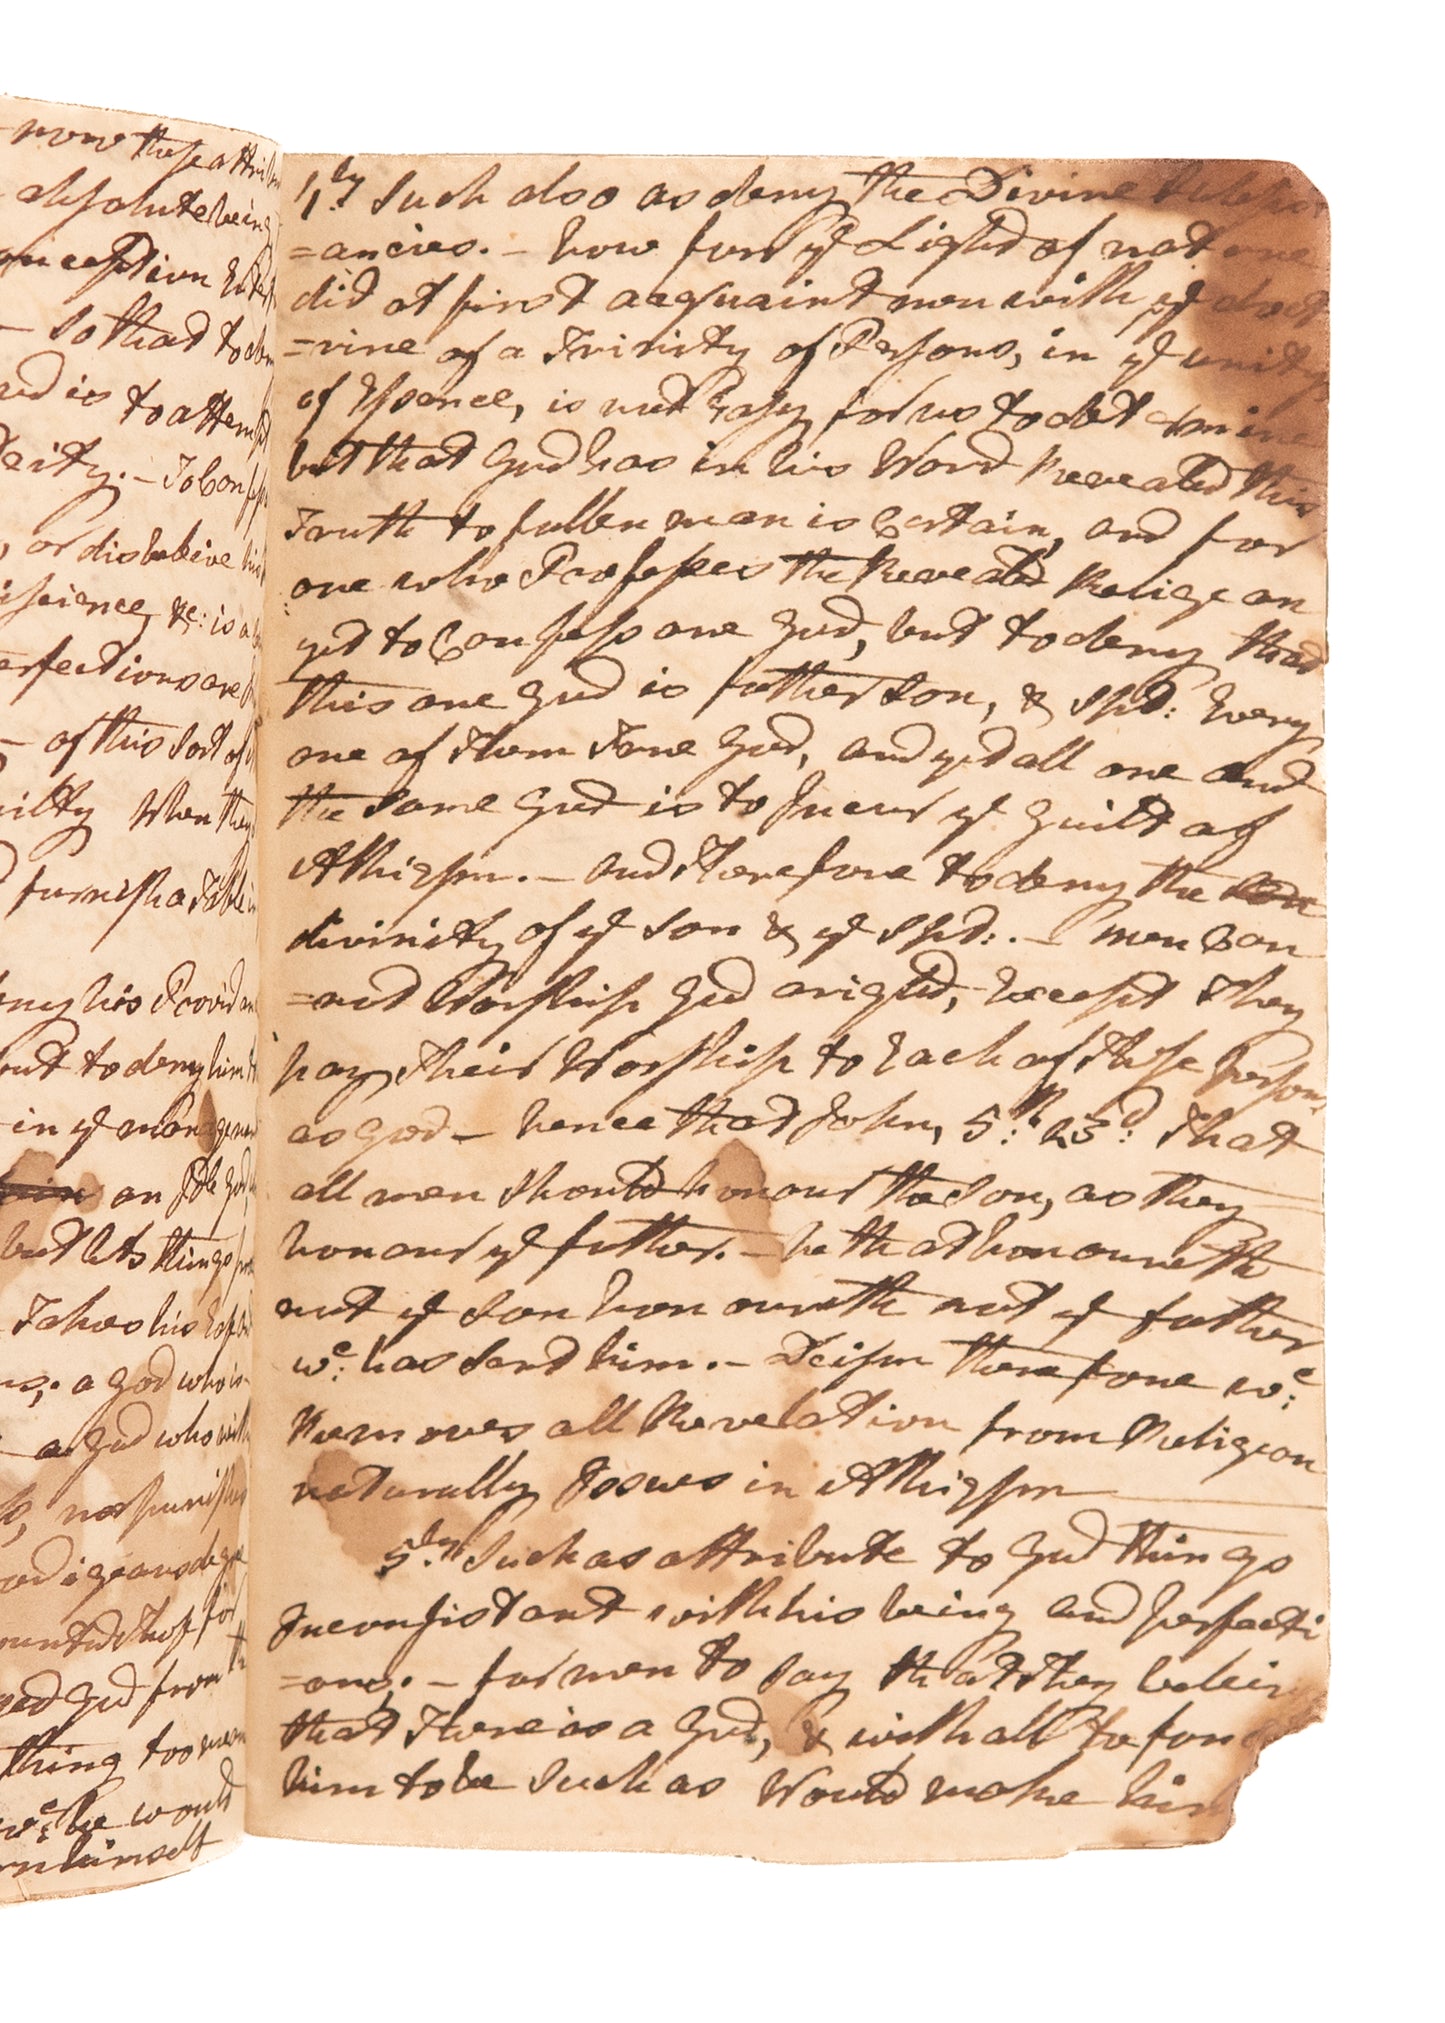 now these attri
absolute being
conception
so that to
is to attem
Deity. – To Con
or disbeleive his
&c: is a
erfections are
of this sort of
When they
furnish a Table
ny his Provid
but to deny him
in ye manage
an Idle God
but lets things
Takes his
a God who is
a God who
nor punish
God from
thing too
wc: he would
himself
4.ly Such also as deny the Divine
=ancies. – how far ye Light of nat
did at first acquaint men with ye doct
=rine of a Trinity of Persons, in ye unity
of Essence, is not Easy for us to determine
but that God has in his Word Revealed this
Truth to fallen man is Certain, and for
one who Professes the Revealed Religeon
yet to Confess one God, but to deny that
this one God is father Son, & Spt: Every
one of Them True God, and yet all one and
the Same God is to Incur ye Guilt of
Athigsm. – and Therefore to deny the
divinity of ye Son & ye Spt: . – men Can
=not Worship God aright, Except They
pay Their Worship to Each of These persons
as God – hence that John, 5:th 23d: That
all men Should honour the Son, as They
honour ye father. – he that honoureth
not ye Son honoureth not ye father
wc: has Sent him. – Deism therefore wc:
Removes all Revelation from Religeon
naturally Issues in Athigsm
5.ly Such as attribute to God things
Inconsistant with his being and perfecti
=ons. – for men to Say that They beleive
that There is a God, & withall to
him to be Such as Would make him